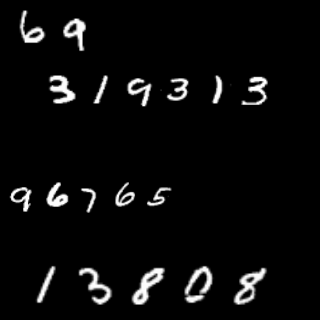 69
319313
96765
13808